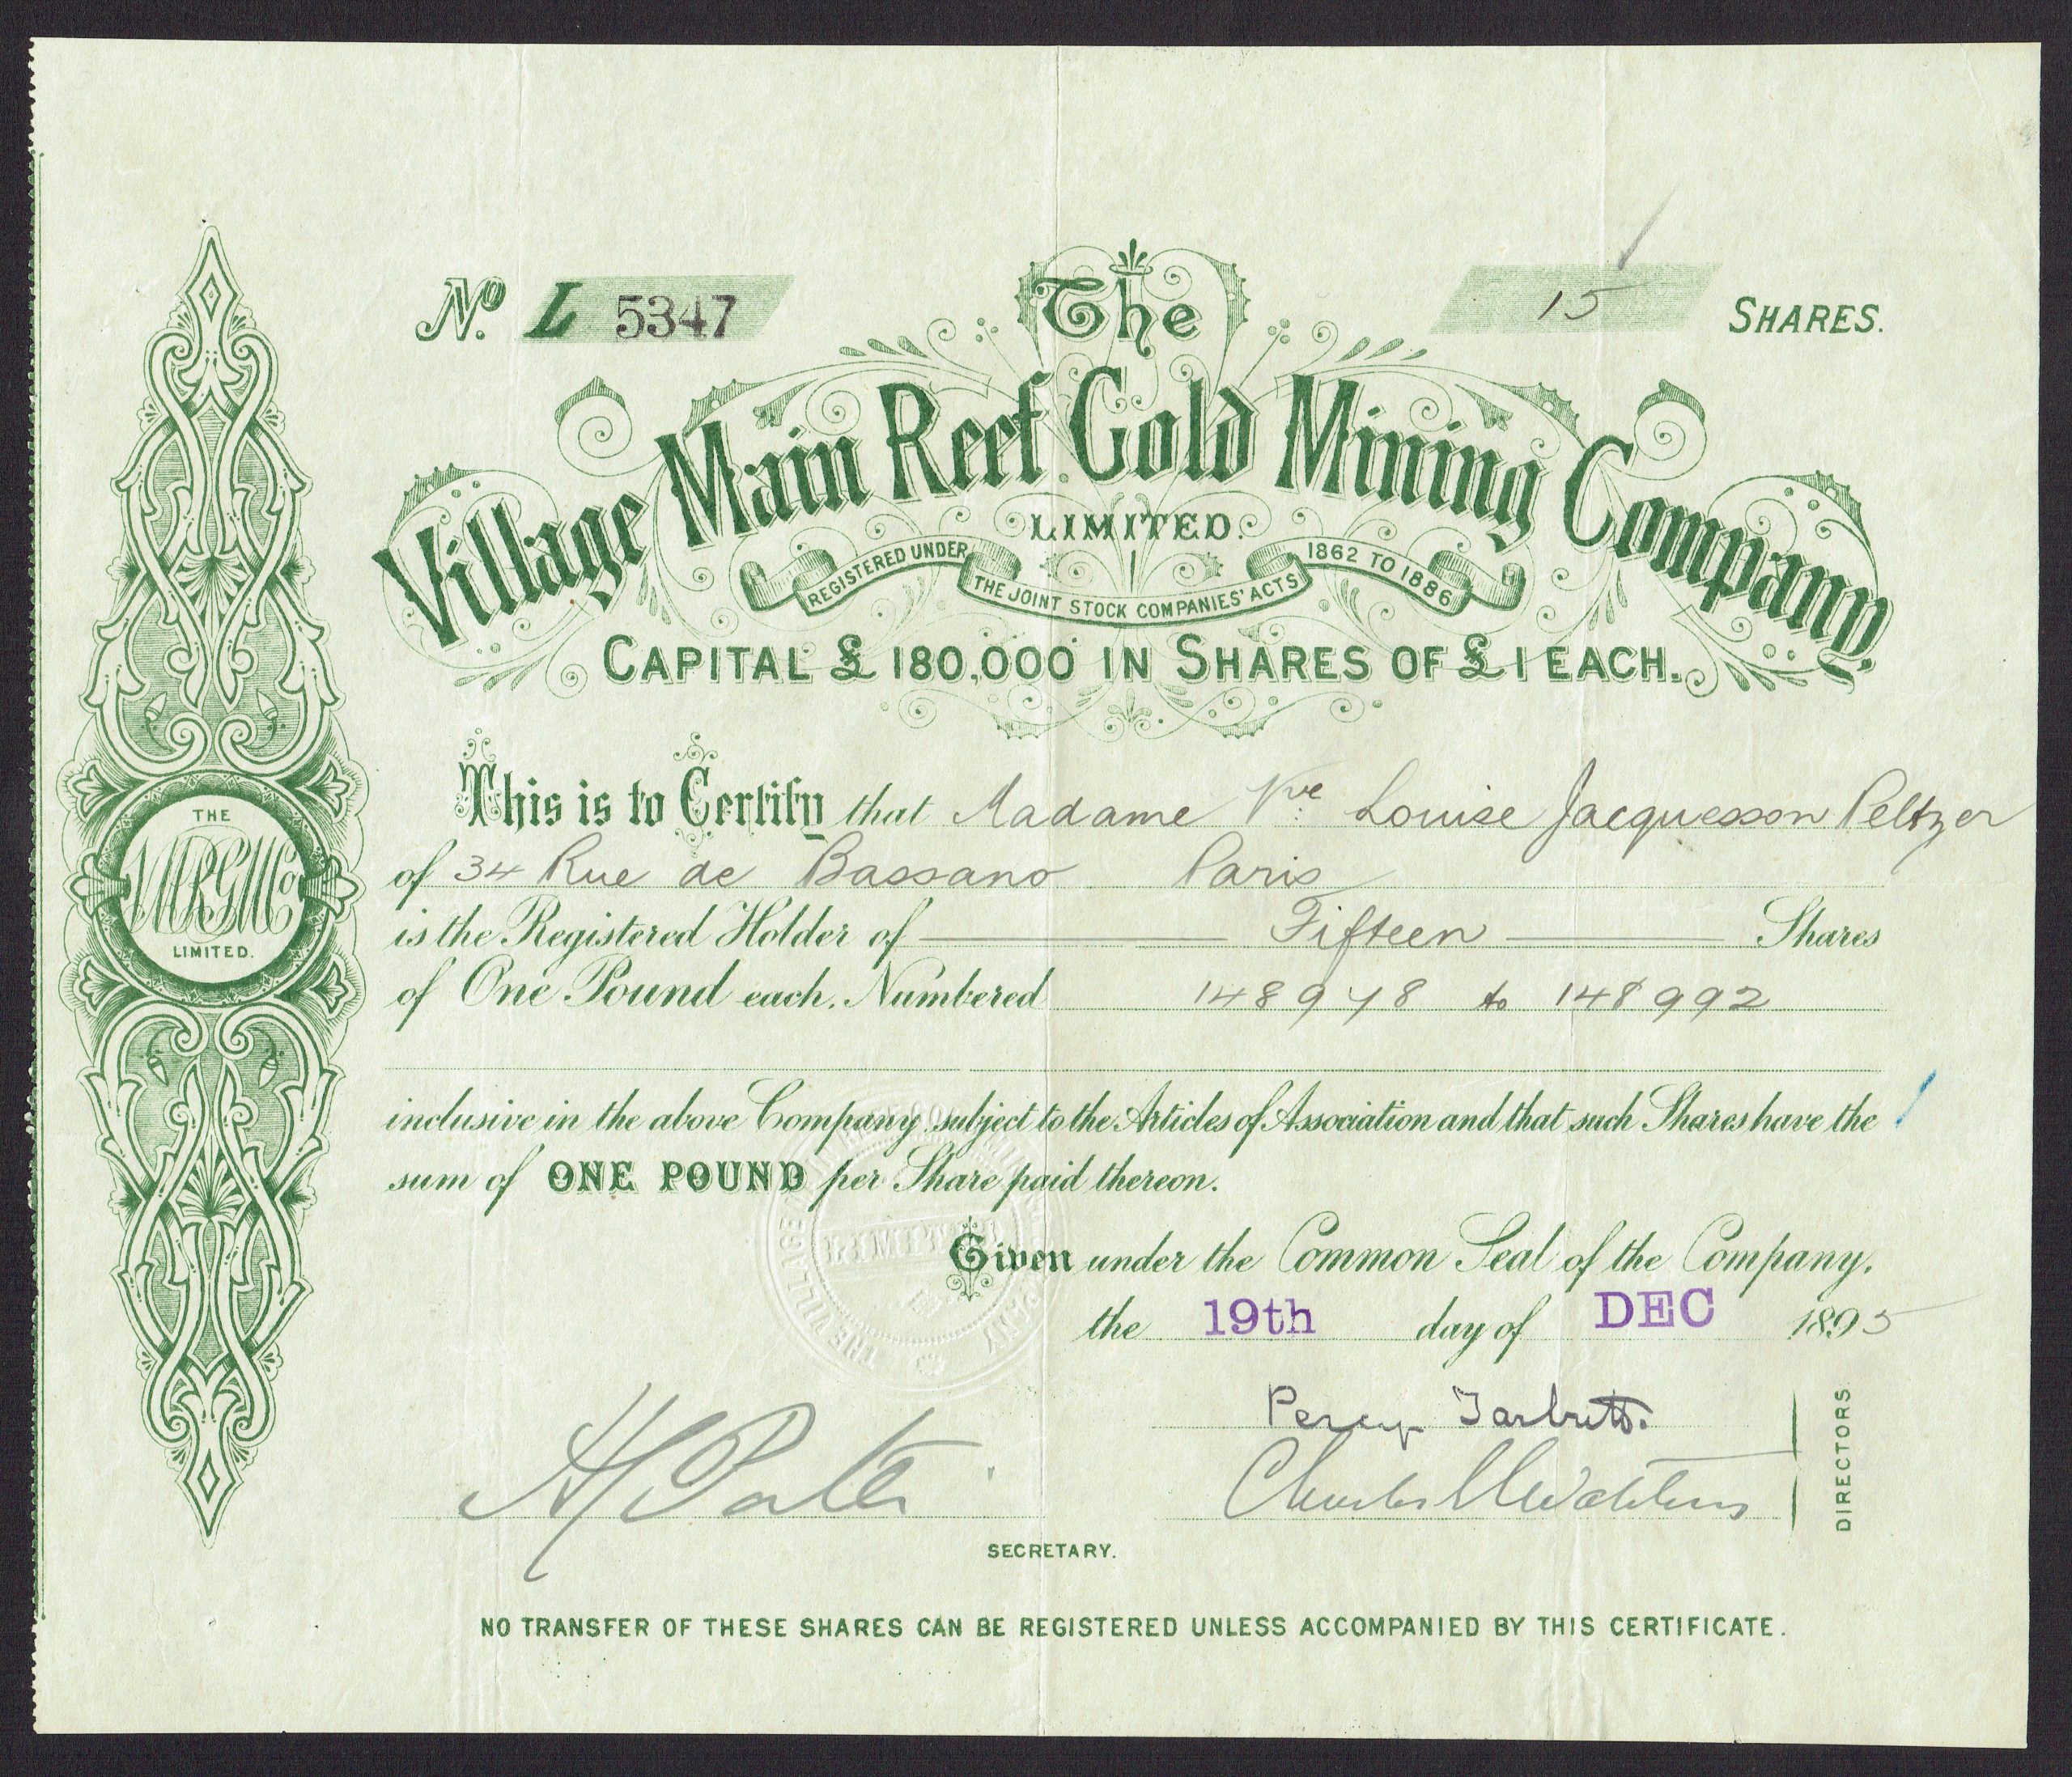 No. L 5347
15 SHARES.
The
Village Main Reef Gold Mining Company.
LIMITED.
REGISTERED UNDER THE JOINT STOCK COMPANIES' ACTS 1862 TO 1886
CAPITAL £180,000 IN SHARES OF £1 EACH.
THE
VMRGMCo
LIMITED.
This is to Certify that Madame Vve Louise Jacquesson Peltzer
of 34 Rue de Bassano Paris
is the Registered Holder of Fifteen Shares
of One Pound each. Numbered 148978 to 148992
inclusive in the above Company subject to the Articles of Association and that such Shares have the
sum of ONE POUND per Share paid thereon.
Given under the Common Seal of the Company,
the 19th day of DEC 1895
Percy Tarbutt.
Charles
DIRECTORS
SECRETARY.
NO TRANSFER OF THESE SHARES CAN BE REGISTERED UNLESS ACCOMPANIED BY THIS CERTIFICATE.
LIMITED